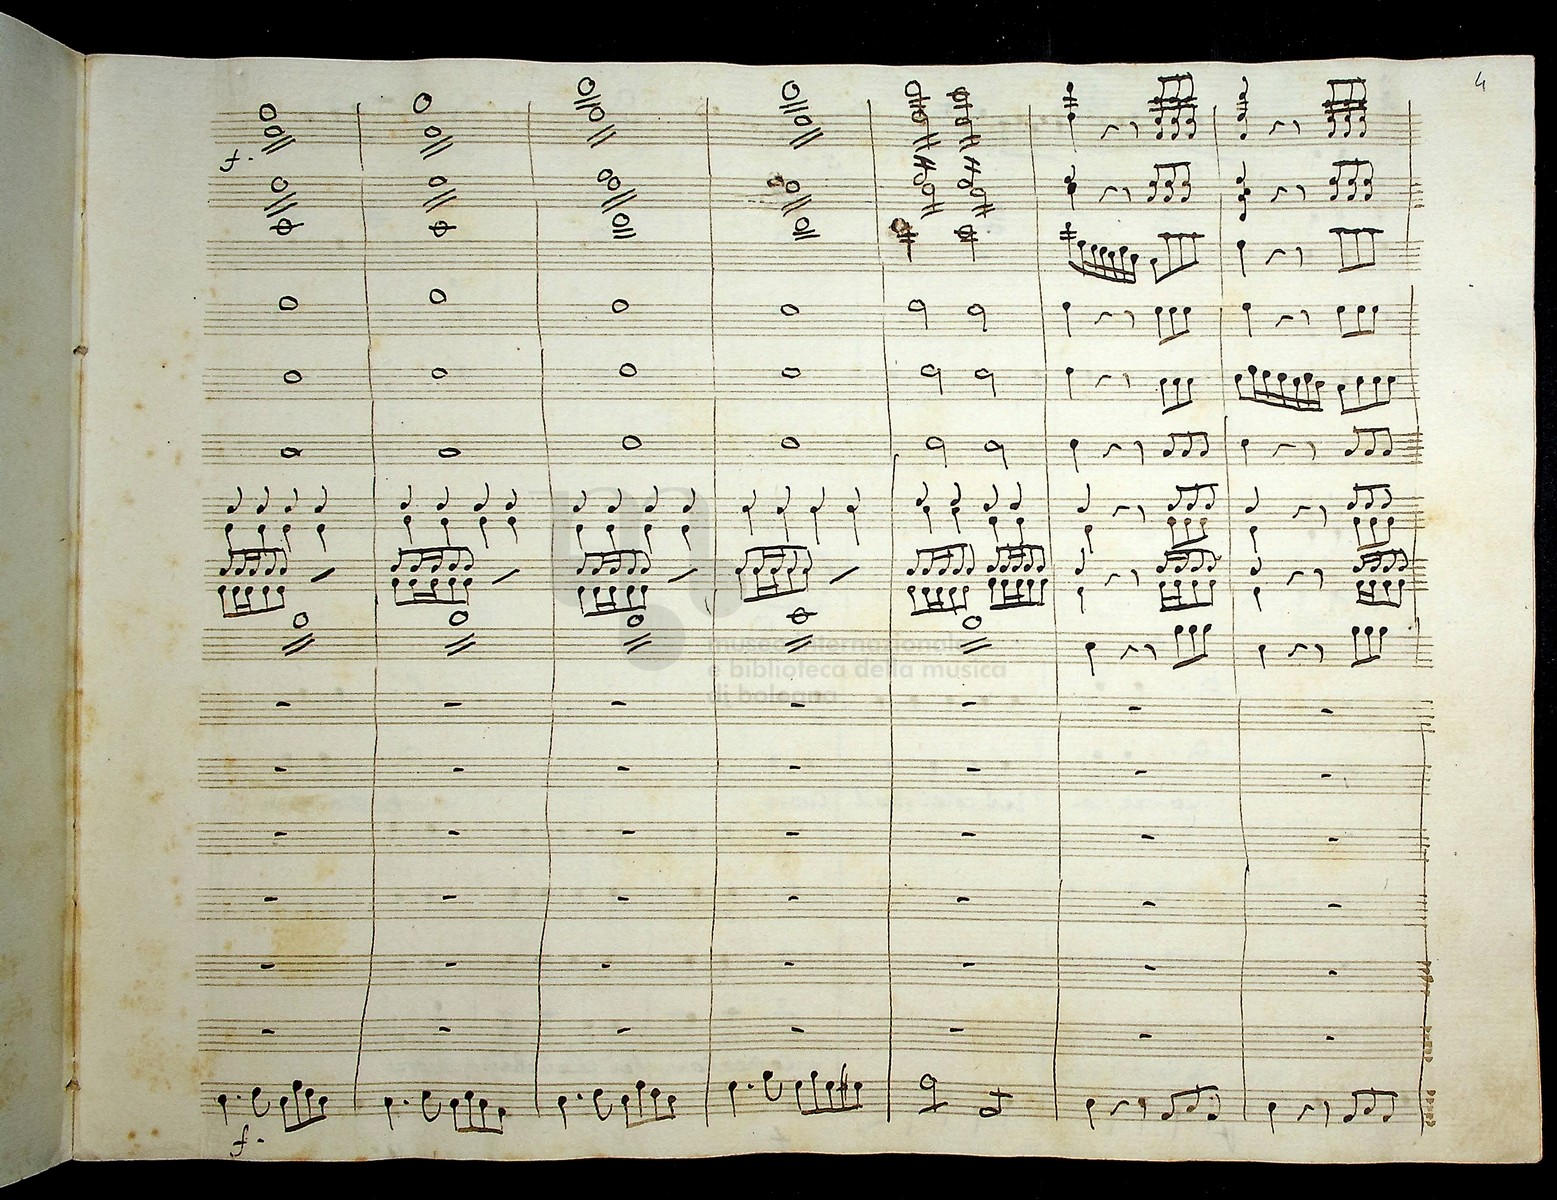 4
f.
museo internazionale
e biblioteca della musica
di bologna
f.